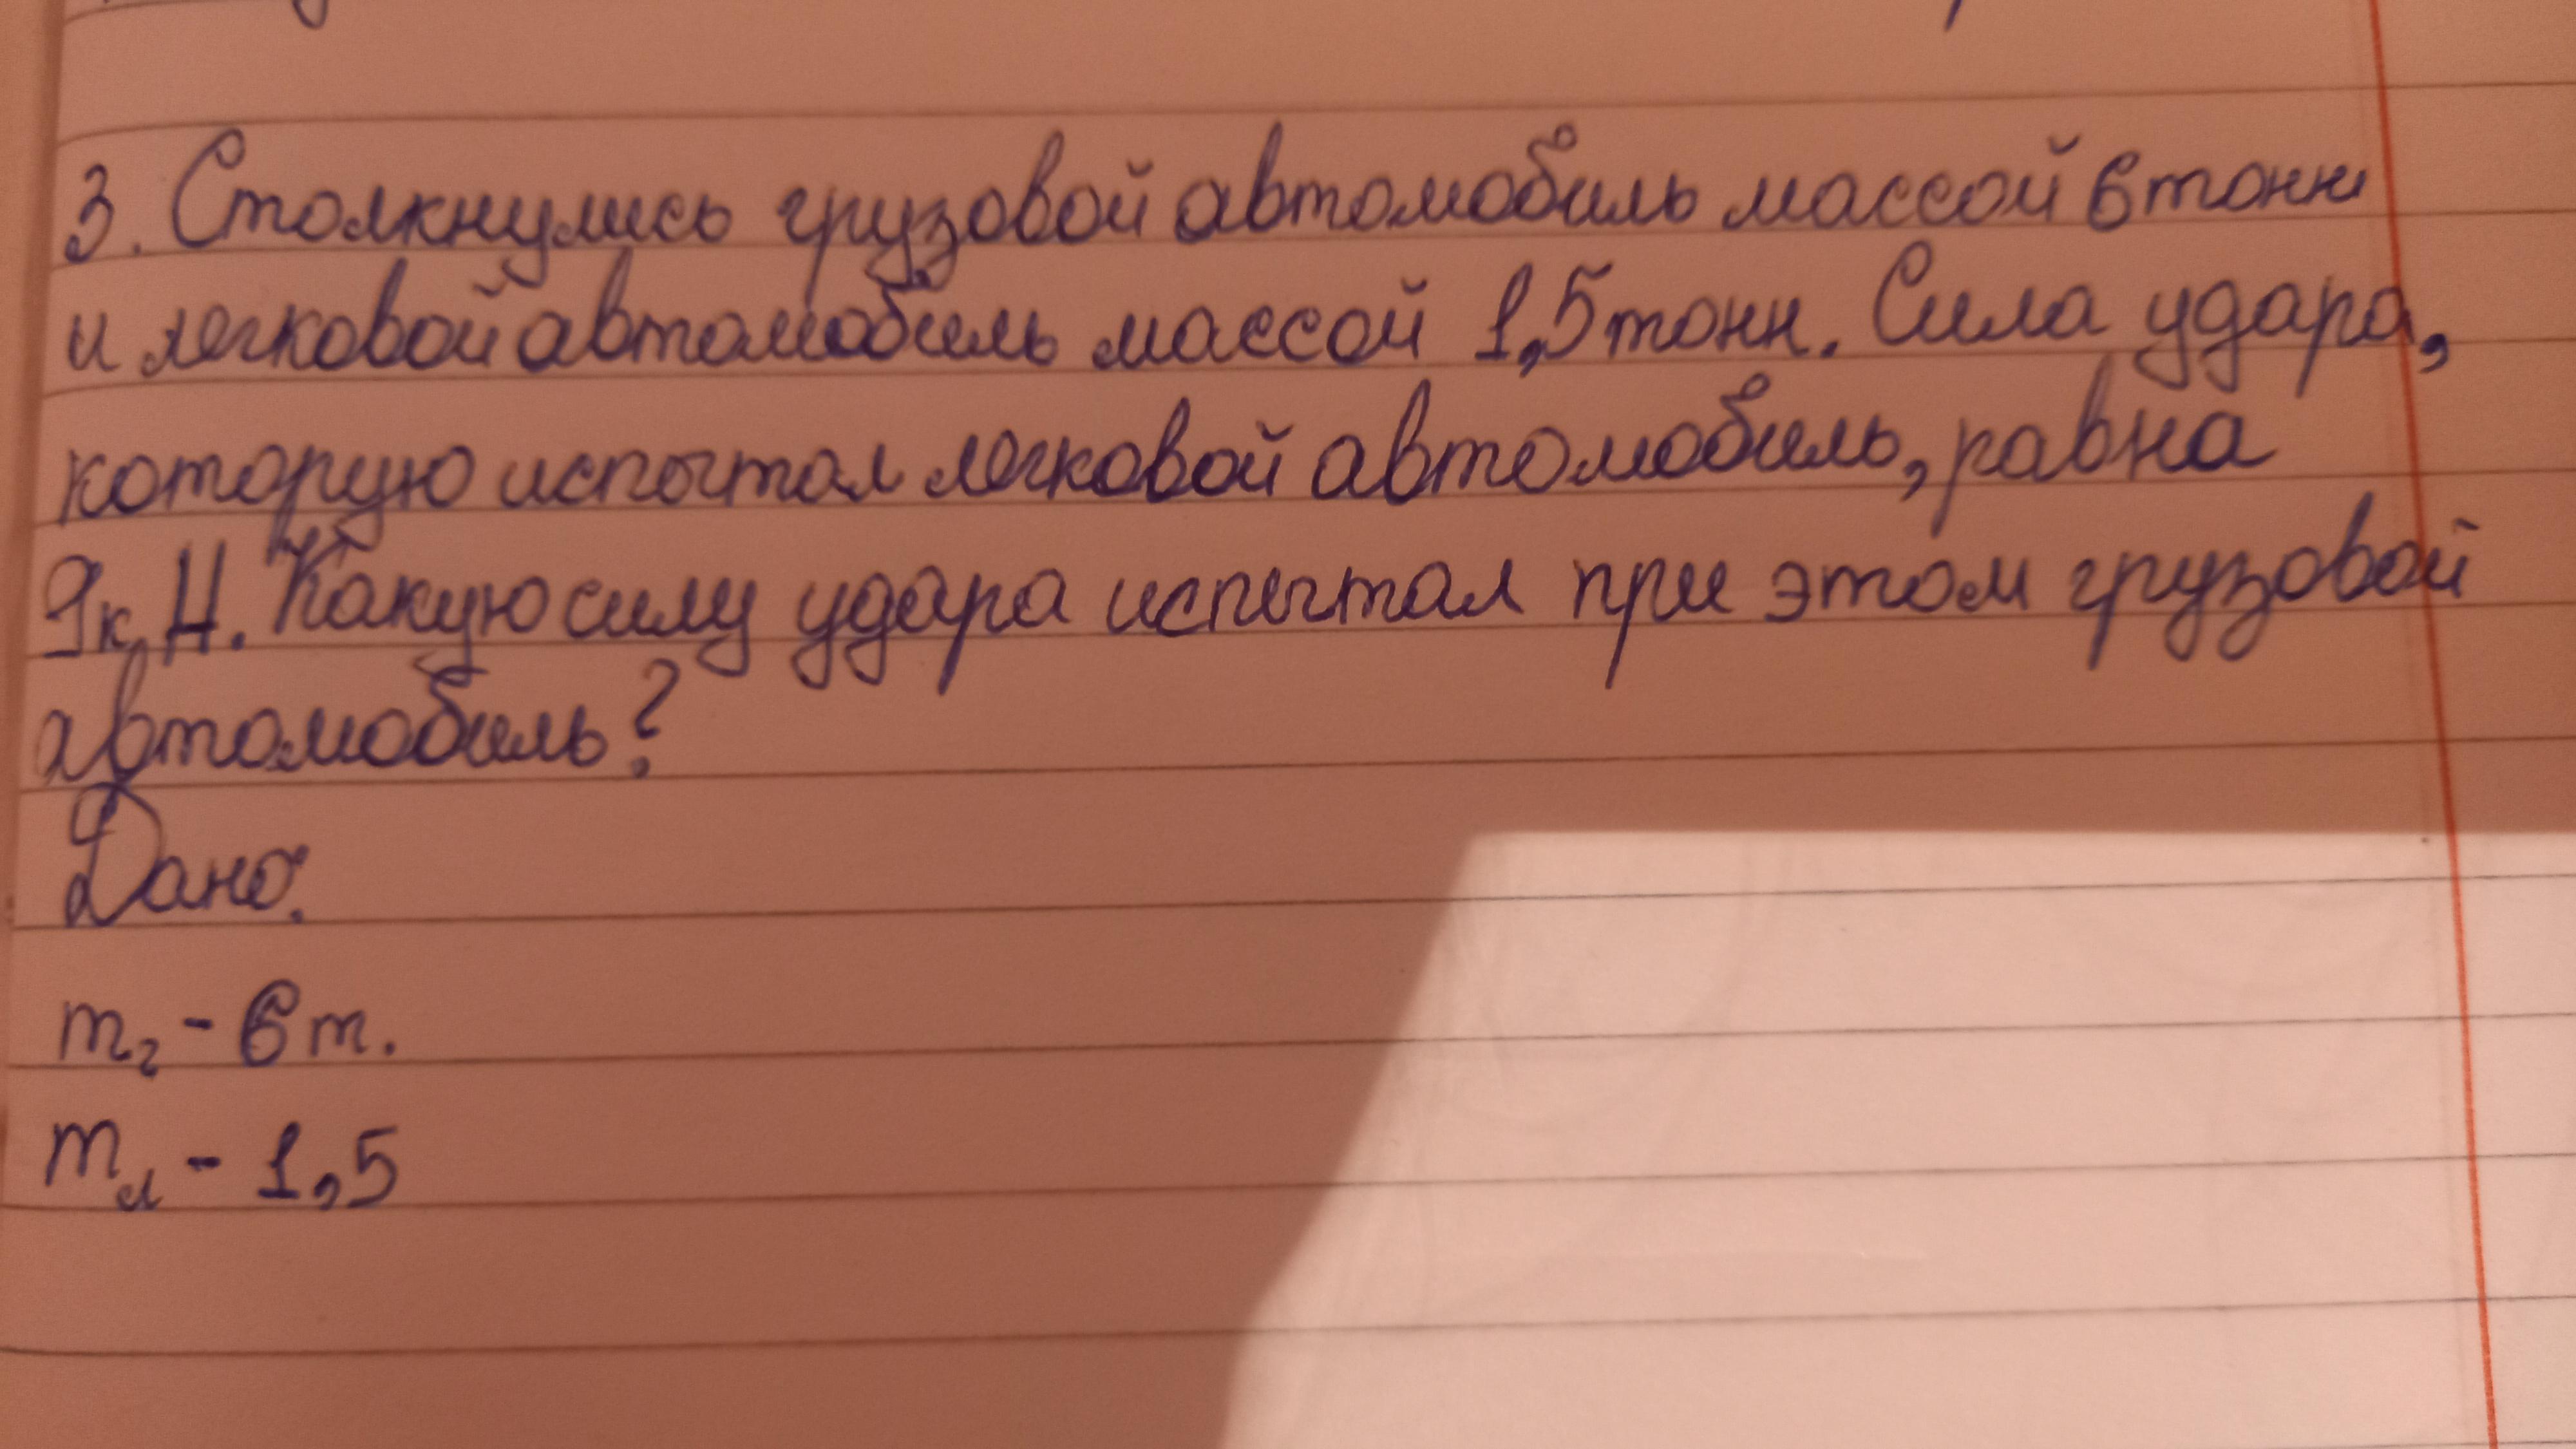 3. Столкнулись грузовой автомобиль массой 6 тонн
и легковой автомобиль массой 1,5 тонн. Сила удара,
которую испытал легковой автомобиль, равна
9 к Н. Какую силу удара испытал при этом грузовой
автомобиль?
Дано.
mг - 6 т.
mл - 1,5